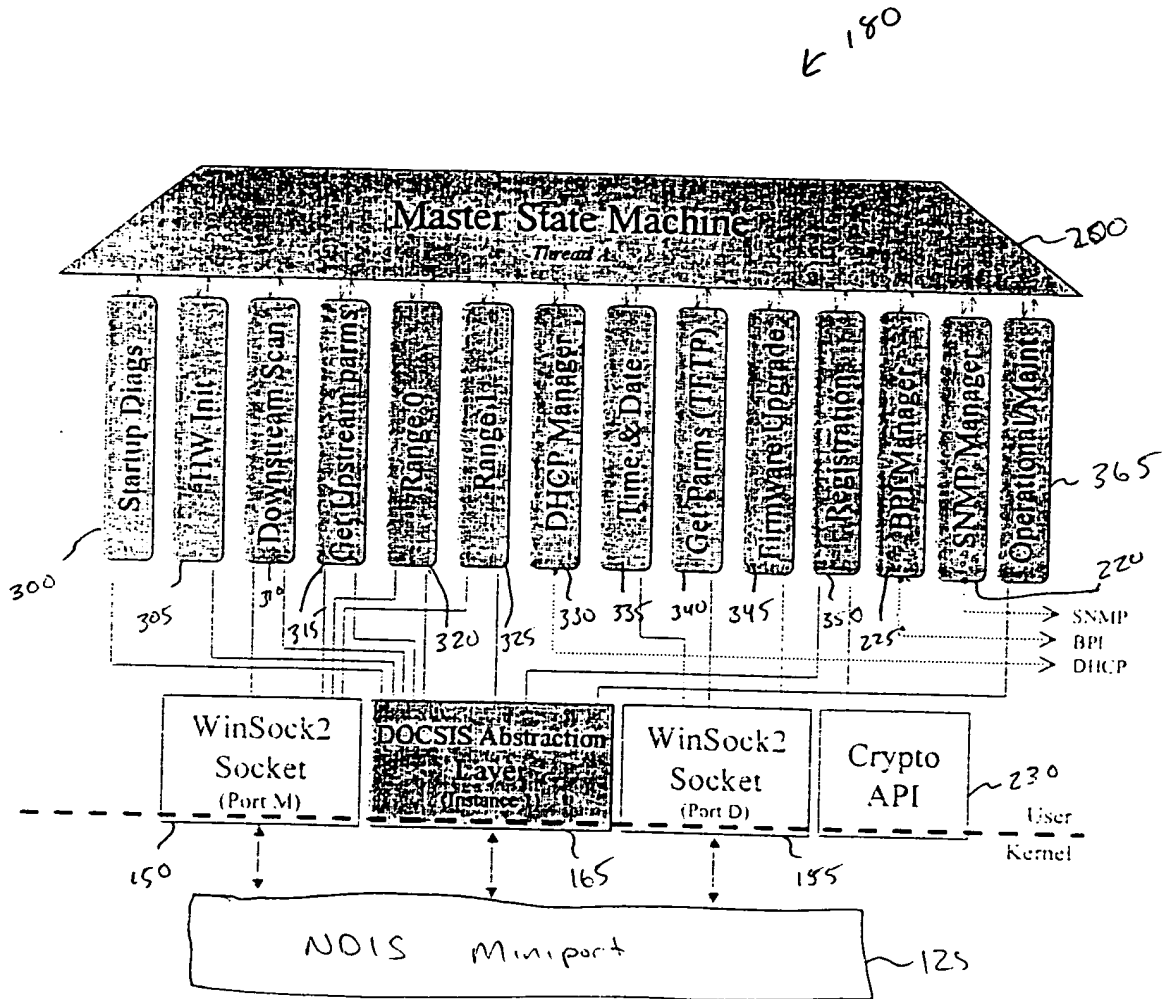 180
Master State Machine
Thread A
200
Startup Diags
HW Init
Downstream Scan
Get Upstream parms
Range 0
Range 1
DHCP Manager
Time & Date
Get Parms (TFTP)
FirmWare Upgrade
Registration
BPI Manager
SNMP Manager
Operational/Maint
365
300
305
310
315
320
325
330
335
340
345
350
225
220
SNMP
BPI
DHCP
WinSock2
Socket
(Port M)
DOCSIS Abstraction
Layer
(Instance)
WinSock2
Socket
(Port D)
Crypto
API
230
User
Kernel
150
165
155
NDIS Miniport
125